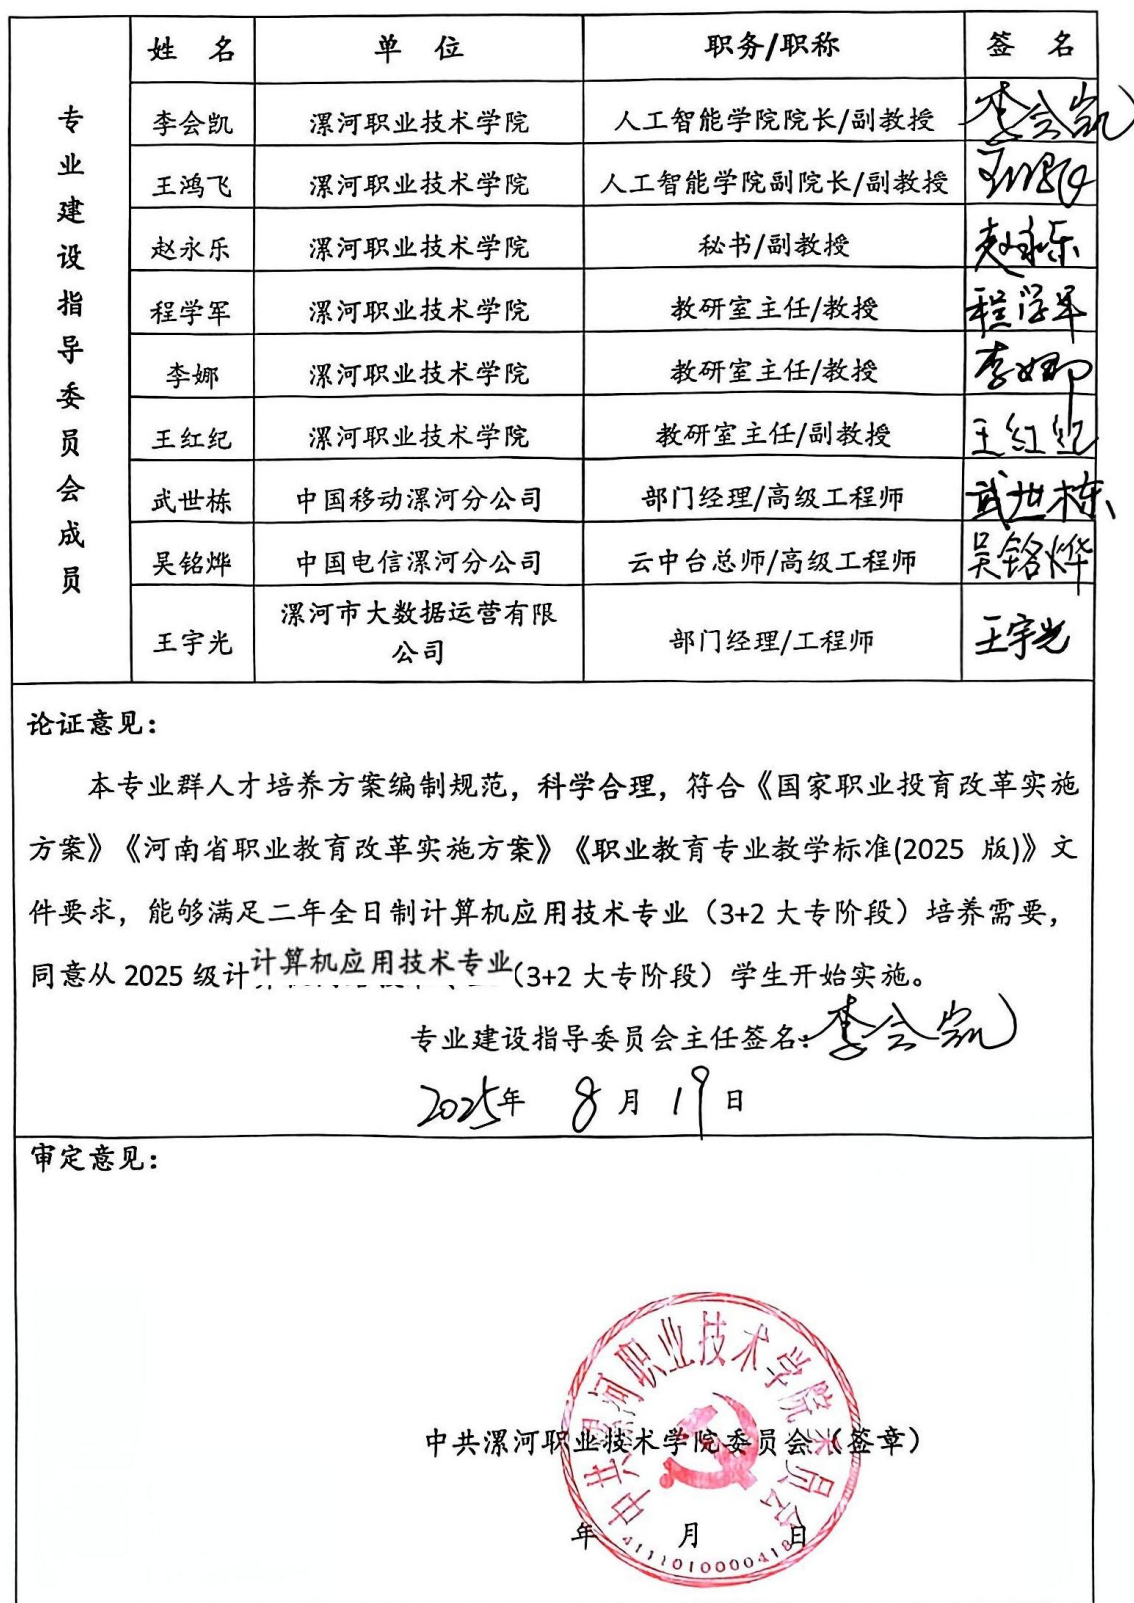 专业建设指导委员会成员
姓 名 单 位 职务/职称 签 名
李会凯 漯河职业技术学院 人工智能学院院长/副教授 李会凯
王鸿飞 漯河职业技术学院 人工智能学院副院长/副教授 王鸿飞
赵永乐 漯河职业技术学院 秘书/副教授 赵永乐
程学军 漯河职业技术学院 教研室主任/教授 程学军
李娜 漯河职业技术学院 教研室主任/教授 李娜
王红纪 漯河职业技术学院 教研室主任/副教授 王红纪
武世栋 中国移动漯河分公司 部门经理/高级工程师 武世栋
吴铭烨 中国电信漯河分公司 云中台总师/高级工程师 吴铭烨
王宇光 漯河市大数据运营有限 部门经理/工程师 王宇光
公司
论证意见：
本专业群人才培养方案编制规范，科学合理，符合《国家职业投育改革实施
方案》《河南省职业教育改革实施方案》《职业教育专业教学标准(2025 版)》文
件要求，能够满足二年全日制计算机应用技术专业（3+2 大专阶段）培养需要，
同意从 2025 级计计算机应用技术专业（3+2 大专阶段）学生开始实施。
专业建设指导委员会主任签名：李会凯
2025年 8月 19日
审定意见：
中共漯河职业技术学院委员会
中共漯河职业技术学院委员会（签章）
年 月 日